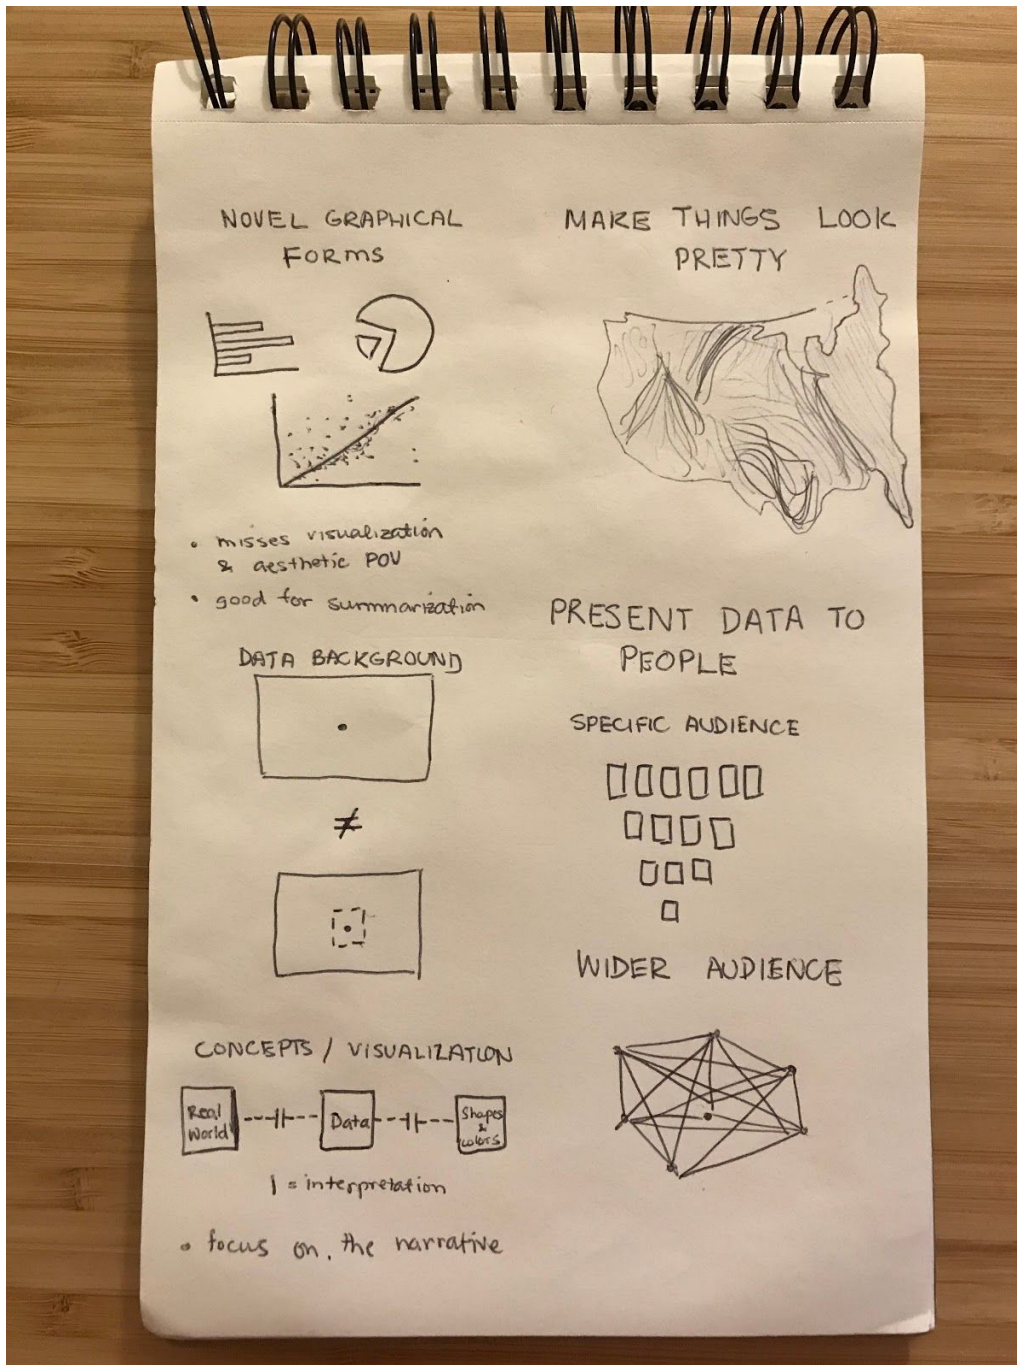 NOVEL GRAPHICAL
FORMS
• misses visualization
& aesthetic POV
• good for summarization
DATA BACKGROUND
≠
CONCEPTS / VISUALIZATION
Real
World
Data
Shapes
&
colors
| = interpretation
• focus on, the narrative
MAKE THINGS LOOK
PRETTY
PRESENT DATA TO
PEOPLE
SPECIFIC AUDIENCE
WIDER AUDIENCE